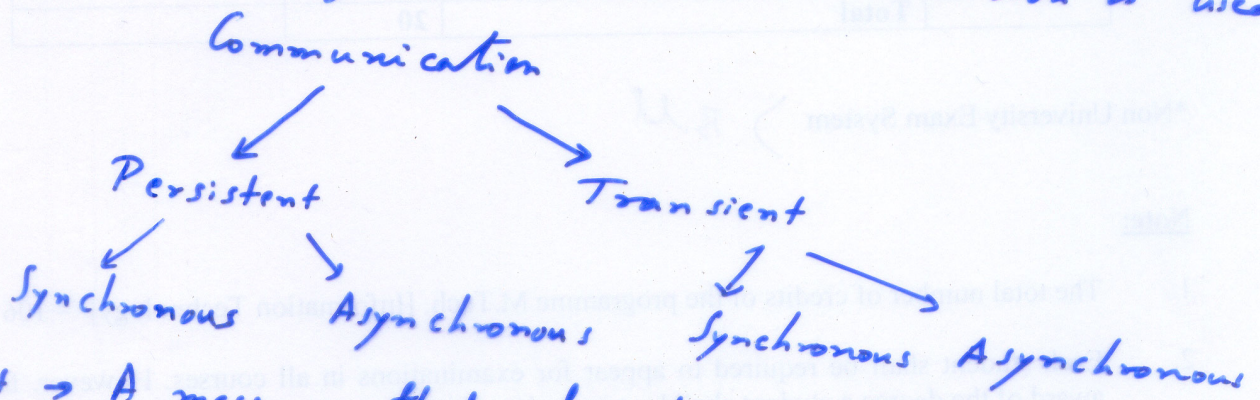 is used
Communication
Persistent Transient
Synchronous Asynchronous Synchronous Asynchronous
→ A